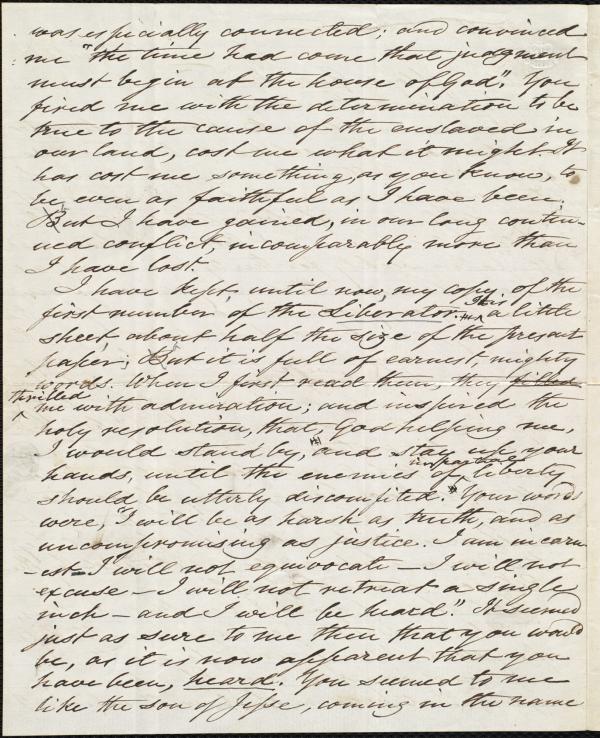 was especially connected; and convinced
me "the time had come that judgment
must begin at the house of God". You
fired me with the determination to be
true to the cause of the enslaved in
our land, cost me what it might. It
has cost me something, as you know, to
be even as faithful as I have been.
But I have gained, in our long contin-
ued conflict, incomparably more than
I have lost.
I have kept, until now, my copy of the
first number of the Liberator. It is a little
sheet, about half the size of the present
paper; But it is full of earnest, mighty
words. When I first read them, they filled
thrilled
me with admiration; and inspired the
holy resolution, that, God helping me,
I would stand by, and stay up your
hands, until the enemies of impartial liberty
should be utterly discomfited. Your words
were, "I will be as harsh as truth, and as
uncompromising as justice. I am in earn
-est - I will not equivocate - I will not
excuse - I will not retreat a single
inch - and I will be heard." It seemed
just as sure to me then that you would
be, as it is now apparent that you
have been, heard. You seemed to me
like the son of Jesse, coming in the name